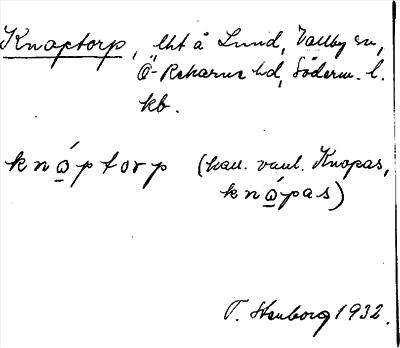 Knaptorp, lht å Lund, Vallby sn,
Ö-Rekarne hd, Söderm. l.
kb.
knä̱ptorp (kall. vanl. Knopas,
knä̱pas)
T. Stenborg 1932.